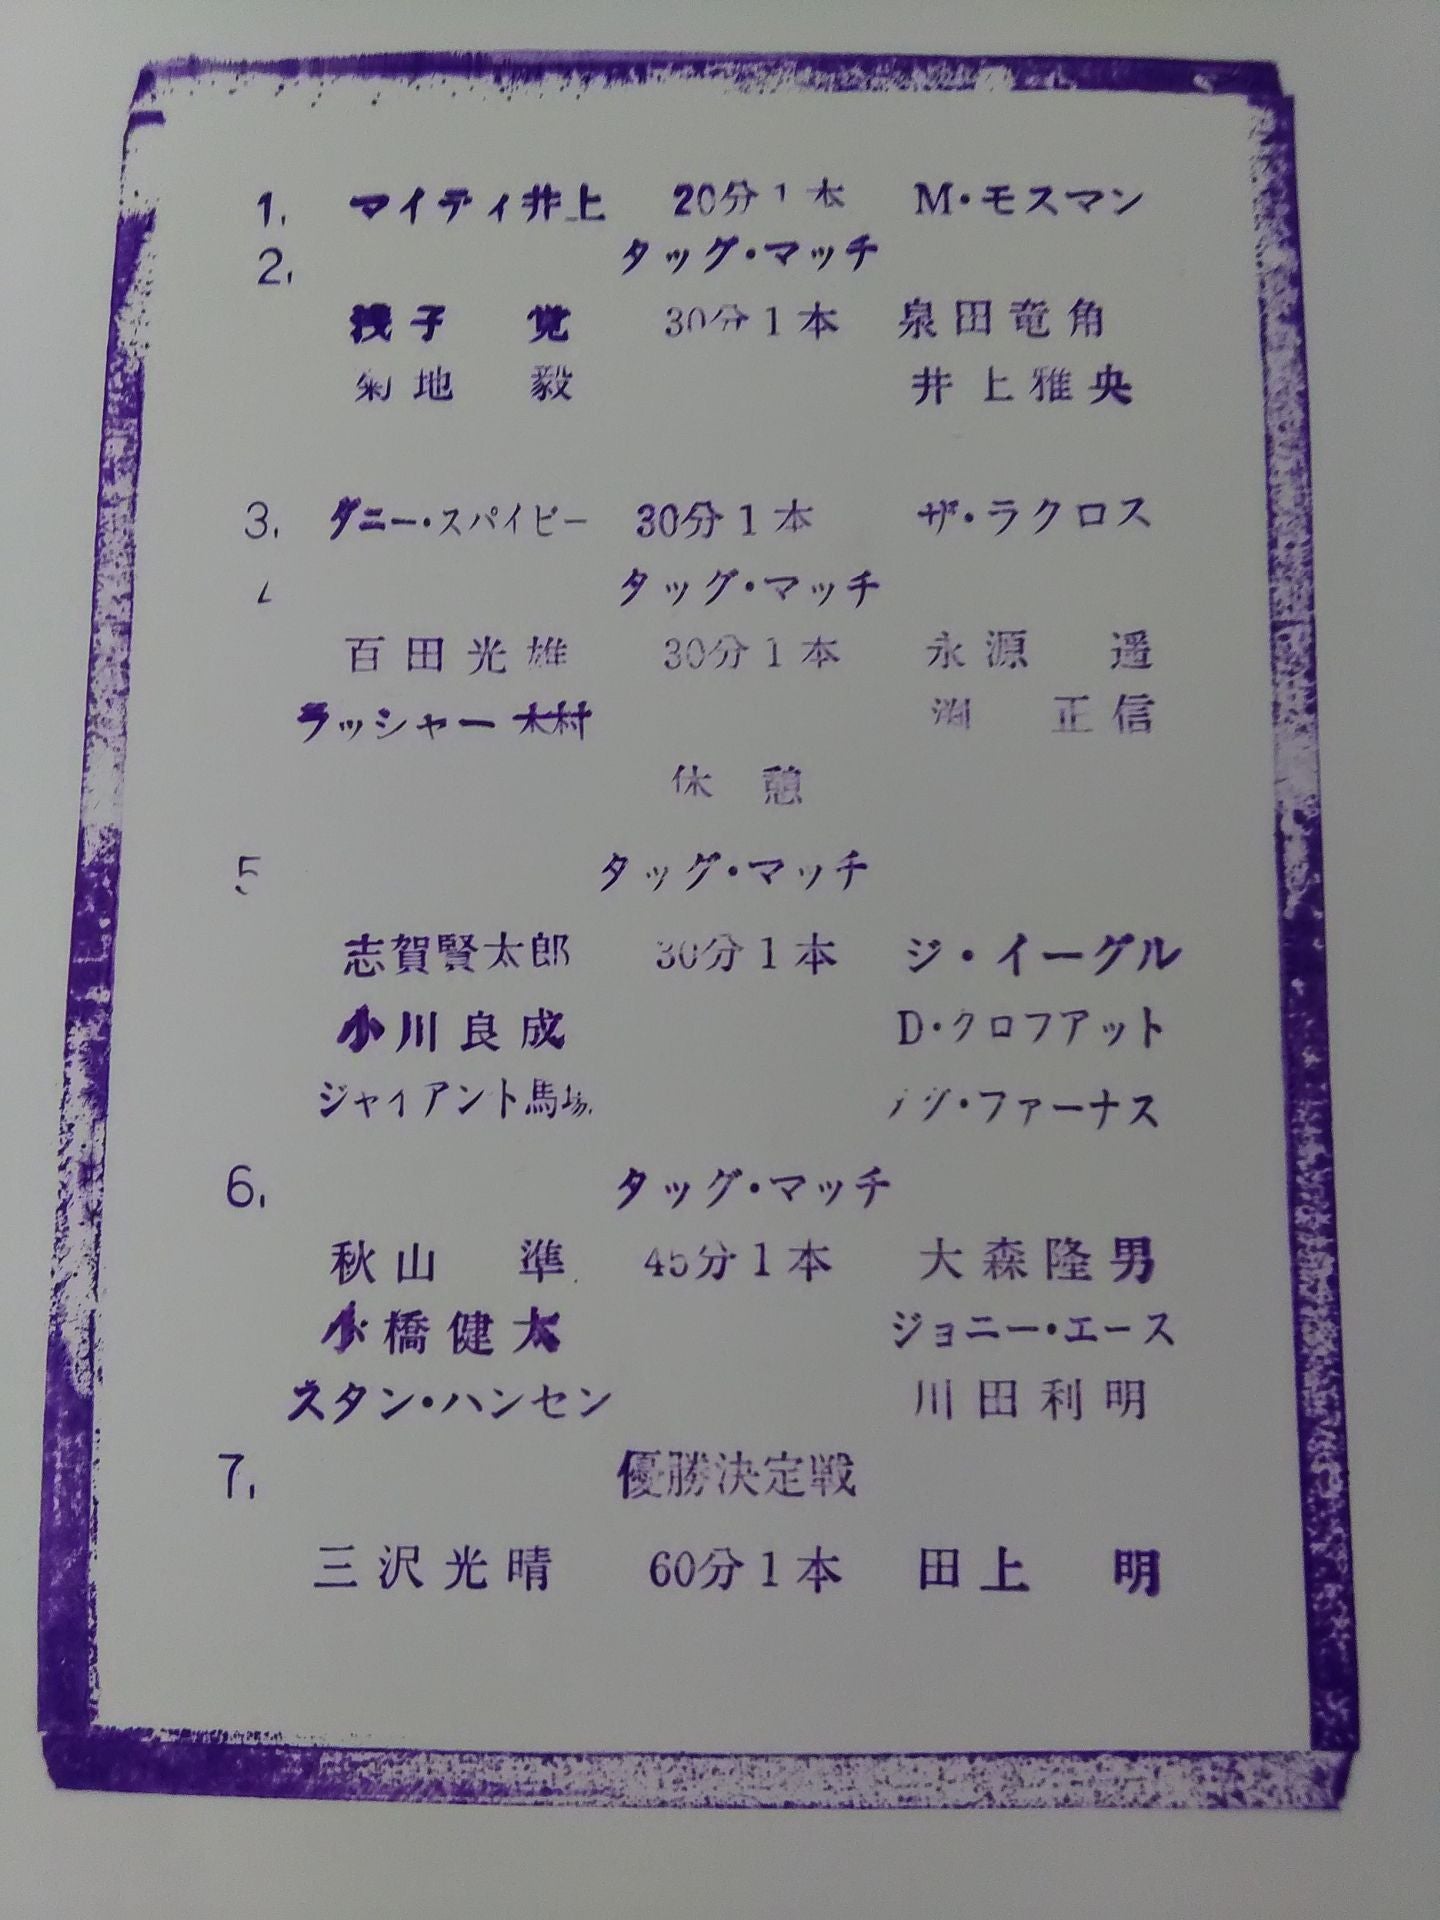 1. マイティ井上 20分1本 M・モスマン
2. タッグ・マッチ
浅子 覚 30分1本 泉田竜角
菊地 毅 井上雅央
3. ダニー・スパイビー 30分1本 ザ・ラクロス
タッグ・マッチ
百田光雄 30分1本 永源 遥
ラッシャー木村 渕 正信
休憩
5 タッグ・マッチ
志賀賢太郎 30分1本 ジ・イーグル
小川良成 D・クロフアット
ジャイアント馬場 ダグ・ファーナス
6. タッグ・マッチ
秋山 準 45分1本 大森隆男
小橋健太 ジョニー・エース
スタン・ハンセン 川田利明
7. 優勝決定戦
三沢光晴 60分1本 田上 明